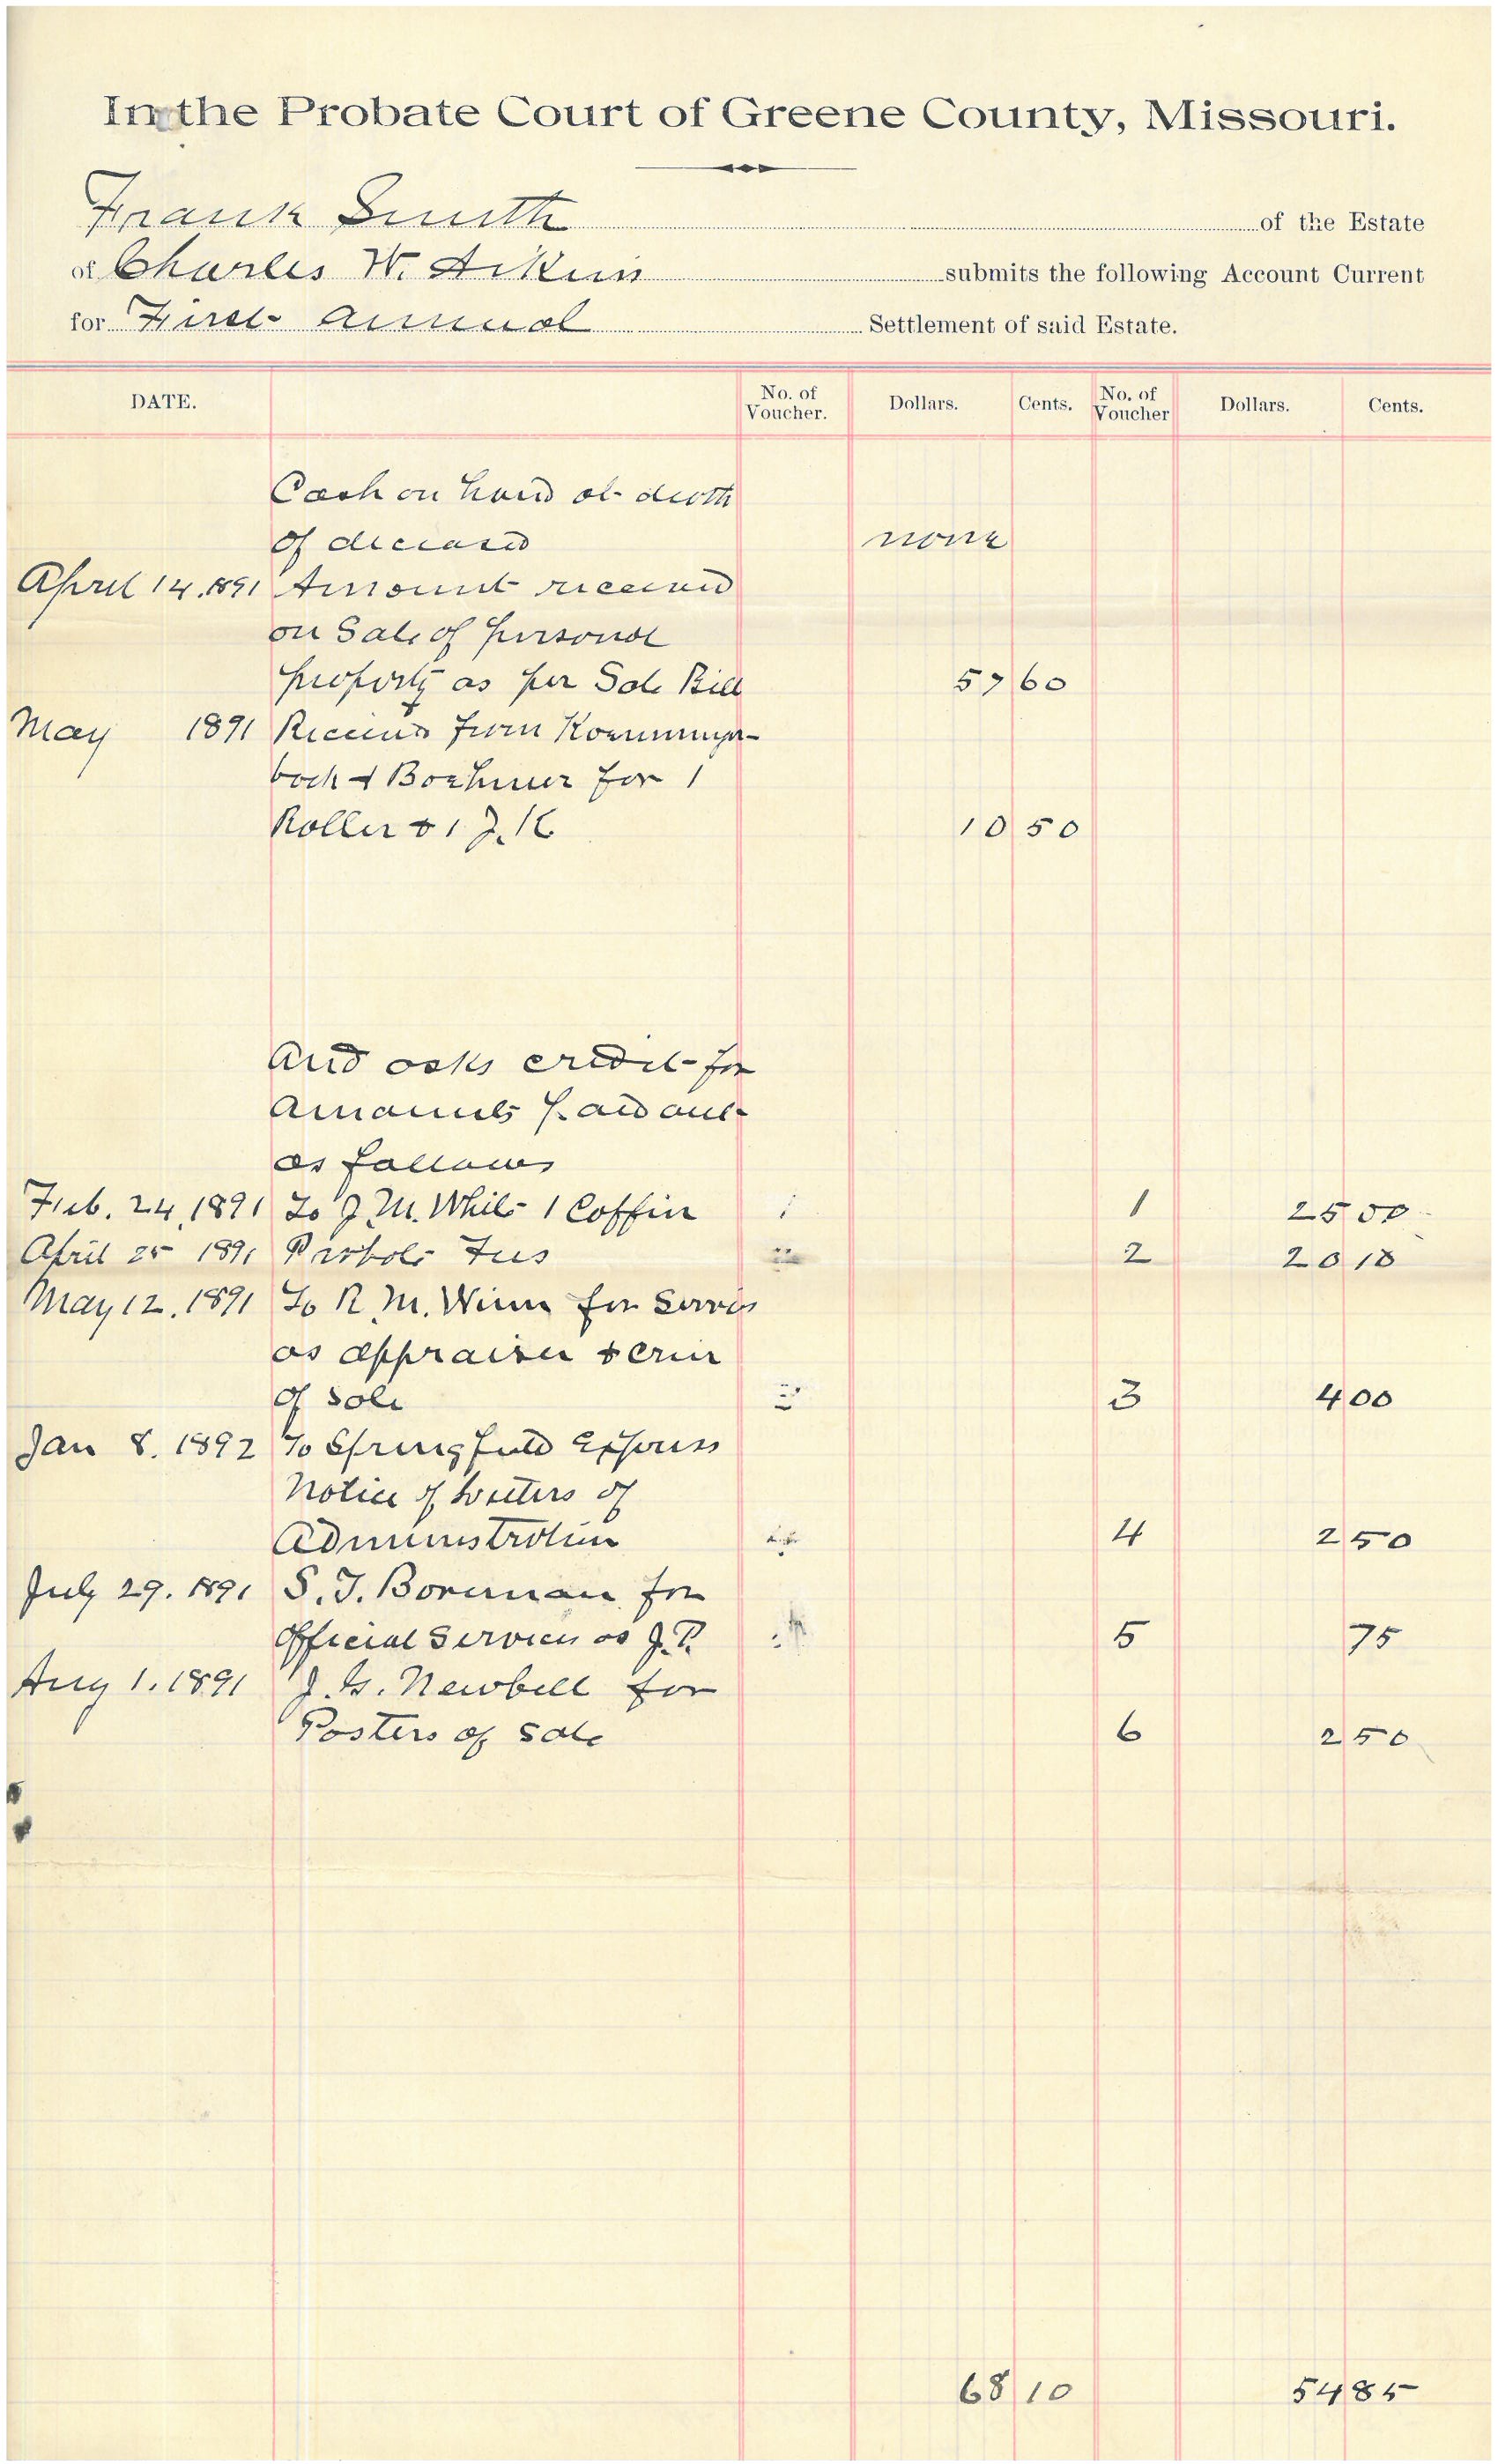 In the Probate Court of Greene County, Missouri.
Frank Smith of the Estate
of Charles W. Aikin submits the following Account Current
for First Annual Settlement of said Estate.
DATE. No. of Voucher. Dollars. Cents. No. of Voucher Dollars. Cents.
Cash on hand at death
of deceased none
April 14. 1891 Amount received
on Sale of personal
property as per Sale Bill 57 60
May 1891 Received from
& Boehmer for 1
Roller & 1 10 50
And asks credit for
Amounts paid out
as follows
Feb. 24, 1891 To J. M. White 1 Coffin 1 25 00
April 25 1891 Probate Fees 2 20 10
May 12. 1891 To R. M. Winn for Services
as appraiser &
of Sale 3 4 00
Jan 8. 1892 To Springfield Express
Notice of Letters of
Administration 4 2 50
July 29. 1891 S. J. Boreman for
Official Services as J. P. 5 75
Aug 1. 1891 J. G. Newbill for
Posters of Sale 6 2 50
68 10 54 85